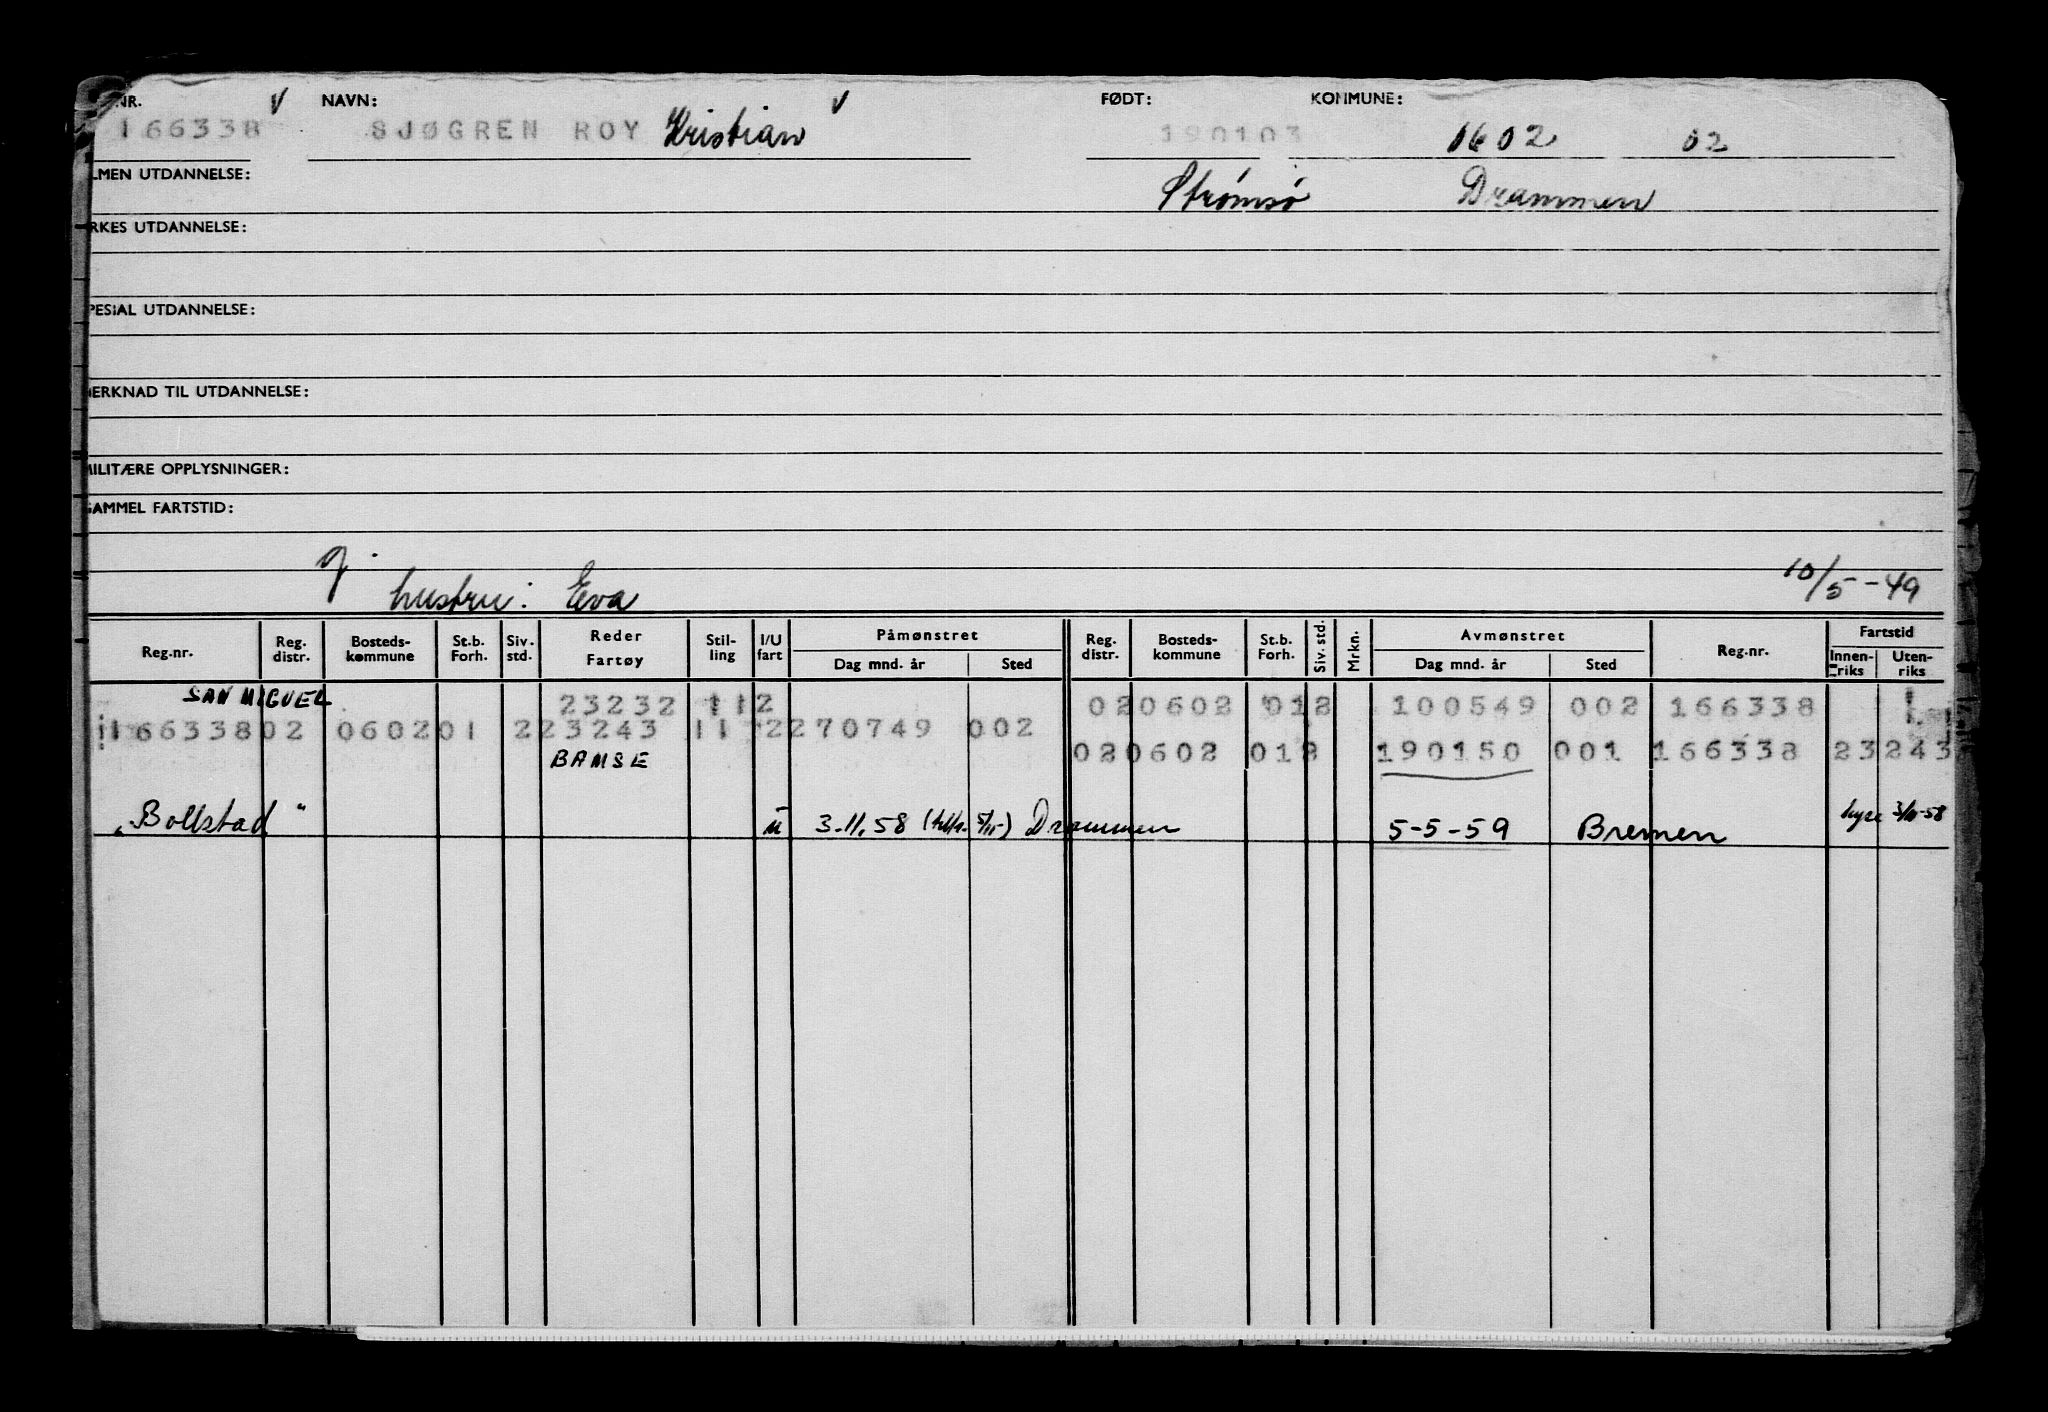 NR. v NAVN: v FØDT: KOMMUNE:
166338 SJØGREN ROY Kristian 190103 0602 02
LMEN UTDANNELSE: Strømsø Drammen
RKES UTDANNELSE:
PESIAL UTDANNELSE:
MERKNAD TIL UTDANNELSE:
MILITÆRE OPPLYSNINGER:
GAMMEL FARTSTID:
g.
hustru: Eva 10/5-49
Reg.nr. Reg. distr. Bosteds-kommune St.b. Forh. Siv. std. Reder Fartøy Stil-ling I/U fart Påmønstret Dag mnd. år Sted Reg. distr. Bosteds-kommune St.b. Forh. Siv. std. Mrkn. Avmønstret Dag mnd. år Sted Reg.nr. Fartstid Innen-riks Uten-riks
SAN MIGUEL 23232 112 020602 012 100549 002 166338 1
16633802 060201 223243 11 2270749 002
BAMSE 020602 012 190150 001 166338 23243
"Bollstad" u 3.11.58 Drammen 5-5-59 Bremen hyre 3/11-58